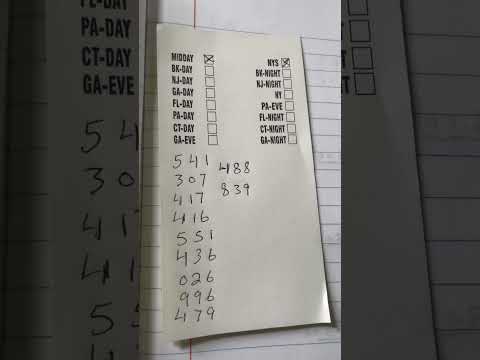 FL-DAY
PA-DAY
CT-DAY
GA-EVE
5 4
3 0
417
5 5
MIDDAY
BK-DAY
NJ-DAY
GA-DAY
FL-DAY
PA-DAY
CT-DAY
GA-EVE
NYS
BK-NIGHT
NJ-NIGHT
NY
PA-EVE
FL-NIGHT
CT-NIGHT
GA-NIGHT
541
307
417
416
551
436
026
996
479
488
839